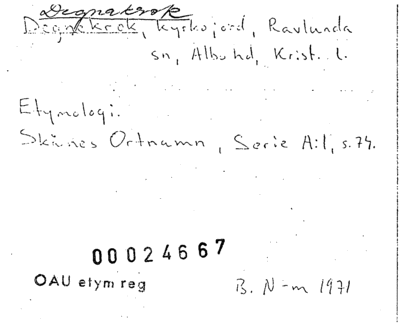 Degnakrok
Degnekrok, kyrkojord, Ravlunda
sn, Albo hd, Krist. l.
Etymologi.
Skånes Ortnamn, Serie A:1, s. 74.
00024667
OAU etym reg
B. N-m 1971